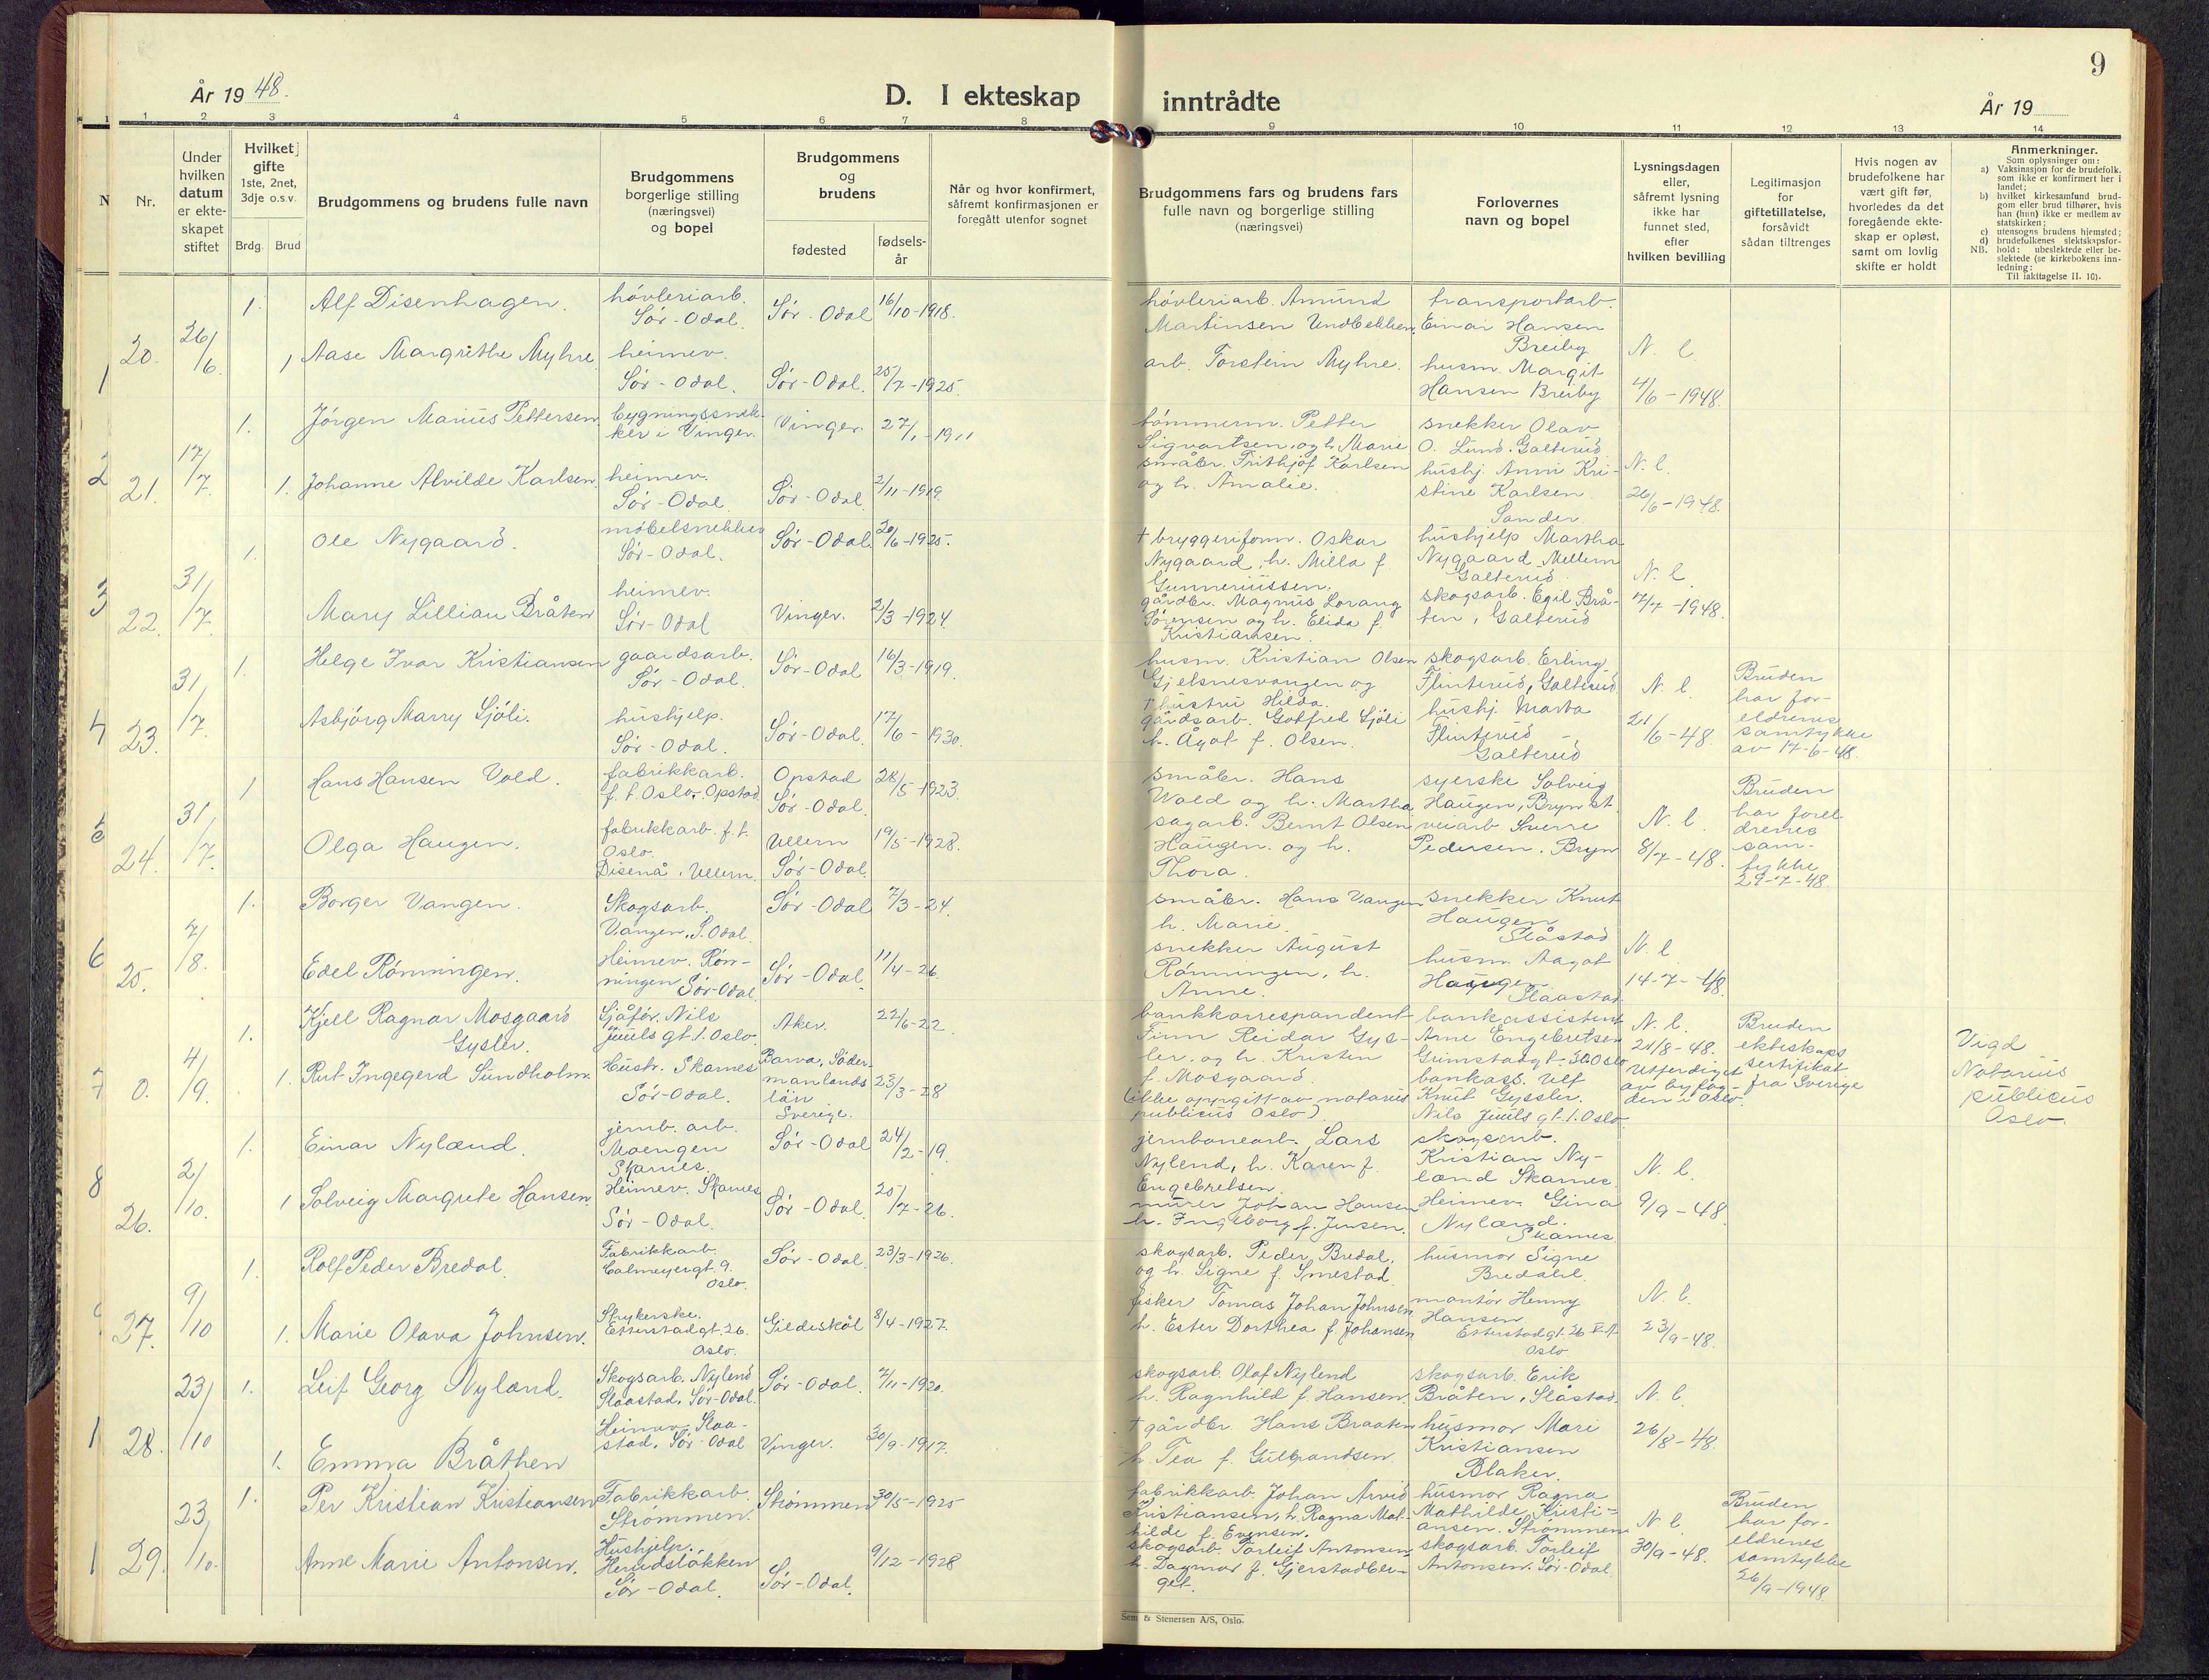 År 1948.
D. I ekteskap
inntrådte
År 19
9
1 2 3 4 5 6 7 8 9 10 11 12 13 14
Nr.
Under hvilken datum er ekte-skapet stiftet
Hvilket gifte 1ste, 2net, 3dje o.s.v.
Brdg. Brud
Brudgommens og brudens fulle navn
Brudgommens borgerlige stilling (næringsvei) og bopel
Brudgommens og brudens
fødested
fødsels-år
Når og hvor konfirmert, såfremt konfirmasjonen er foregått utenfor sognet
Brudgommens fars og brudens fars fulle navn og borgerlige stilling (næringsvei)
Forlovernes navn og bopel
Lysningsdagen eller, såfremt lysning ikke har funnet sted, efter hvilken bevilling
Legitimasjon for giftetillatelse, forsåvidt sådan tiltrenges
Hvis nogen av brudefolkene har vært gift før, hvorledes da det foregående ekte-skap er opløst, samt om lovlig skifte er holdt
Anmerkninger.
Som oplysninger om:
a) Vaksinasjon for de brudefolk. som ikke er konfirmert her i landet;
b) hvilket kirkesamfund brud-gom eller brud tilhører, hvis han (hun) ikke er medlem av statskirken;
c) utensogns brudens hjemsted;
d) brudefolkenes slektskapsfor-hold: ubeslektede eller be-slektede (se kirkebokens inn-ledning;
NB.
Til iakttagelse II. 10).
20. 26/6.
1. Alf Disenhagen. høvleriarb. Sør-Odal. Sør-Odal 16/10-1918.
høvleriarb. Amund Martinsen Undbekken
transportarb. Einar Hansen Breiby
1 Aase Margrethe Myhre heimev. Sør-Odal. Sør-Odal. 25/7-1925.
arb. Torstein Myhre.
husm. Margit Hansen Breiby
N. l. 4/6-1948.
21. 17/7.
1. Jørgen Marius Pettersen bygningssnek-ker i Vinger. Vinger. 27/1-1911
tømmerm. Petter Sigvartsen, og h. Marie
snekker Olav O. Lund. Galterud
1. Johanne Alvilde Karlsen. heimev. Sør-Odal. Sør-Odal 2/11-1919.
småbr. Frithjof Karlsen og h. Amalie.
hushj. Anni Kri-stine Karlsen Sander
N. l. 26/6-1948.
22. 31/7.
1. Ole Nygaard. møbelsnekker Sør-Odal. Sør-Odal. 20/6-1925.
† bryggeriform. Oskar Nygaard, h. Milla f. Gunneriussen.
hushjelp Martha Nygaard Mellem Galterud
Mary Lillian Bråten heimev. Sør-Odal Vinger. 2/3-1924.
gårdbr. Magnus Lorang Sørensen og h. Elida f. Kristiansen.
skogsarb. Egil Brå-ten, Galterud
N. l. 7/7-1948.
23. 31/7.
1. Helge Ivar Kristiansen gaardsarb. Sør-Odal. Sør-Odal 16/3-1919.
husm. Kristian Olsen Gjelsnesvangen og † hustru Hilda.
skogsarb. Erling Flinterud, Galterud
Asbjørg Marry Sjøli. hushjelp. Sør-Odal. Sør-Odal. 17/6-1930.
gårdsarb. Gotfred Sjøli h. Ågot f. Olsen.
hushj. Marta Flinterud Galterud
N. l. 21/6-48.
Bruden har for-eldrenes samtykke av 17-6-48.
24. 31/7.
1 Hans Hansen Vold. fabrikkarb. f. t. Oslo. Opstad Opstad Sør-Odal. 28/5-1923.
småbr. Hans Wold og h. Martha
syerske Solveig Haugen, Bryn st.
Olga Haugen. fabrikkarb. f. t. Oslo. Disenå. Ullern. Ullern Sør-Odal. 19/5-1928.
sagarb. Bernt Olsen Haugen. og h. Thora.
veiarb Sverre Pedersen. Bryn
N. l. 8/7-48.
Bruden har forel-drenes sam-tykke 29-7-48.
25. 7/8.
1. Borger Vangen. Skogsarb. Vangen. S. Odal. Sør-Odal 7/3-24.
småbr. Hans Vangen h. Marie.
snekker Knut Haugen Slåstad
Edel Rønningen. Heimev. Røn-ningen Sør-Odal. Sør-Odal. 11/4-26.
snekker August Rønningen, h. Anne.
husm. Aagot Haugen Slaastad.
N. l. 14-7-48.
0. 4/9.
1. Kjell Ragnar Mosgaard Gysler. Sjåfør. Nils Juuls gt. 1. Oslo. Aker. 22/6-22.
bankkorrespondent Finn Reidar Gys-ler. og h. Kristen f. Mosgaard.
bankassistent Arne Engebretsen Grimstadgt. 30 Oslo
1. Rut Ingegerd Sundholm. Hustr. Skarnes Sør-Odal. Barva, Søder-manlands län Sverige. 23/3-28
(ikke oppgitt av notarius publicus Oslo)
bankass. Ulf Knut Gyssler. Nils Juuls gt. 1. Oslo.
N. l. 21/8-48. Utferdiget av byfog-den i Oslo.
Bruden ekteskaps sertifikat fra Sverige
Vigd Notarius publicus Oslo.
26. 2/10.
1. Einar Nylænd. jernb. arb. Moengen Skarnes. Sør-Odal 24/2-19.
jernbanearb. Lars Nylend, h. Karen f. Engebretsen.
skogsarb. Kristian Ny-lænd Skarnes.
1 Solveig Margrete Hansen. Heimev. Skarnes Sør-Odal. Sør-Odal. 25/7-26.
murer Johan Hansen h. Ingeborg f. Jensen.
Heimev. Gina Nylænd. Skarnes.
N. l. 9/9-48.
27. 9/10
1. Rolf Peder Bredal. Fabrikkarb. Calmeyergt. 9. Oslo. Sør-Odal. 23/3-1926.
skogsarb. Peder Bredal. og h. Signe f. Smestad
husmor Signe Bredahl.
1. Marie Olava Johnsen. Strykerske. Etterstadgt. 26. Oslo. Gildeskål 8/4-1927.
fisker Tomas Johan Johnsen h. Ester Dorthea f. Johansen
montør Henny Hansen Etterstadgt. 26 Oslo
N. l. 23/9-48.
28. 23/10
1. Leif Georg Nylænd. Skogsarb. Nylend Slaastad. Sør-Odal. Sør-Odal. 7/11-1920.
skogsarb. Olaf Nylend h. Ragnhild f. Hansen.
skogsarb. Erik Bråten, Slåstad.
1. Emma Bråthen Heimev. Slaa-stad. Sør-Odal Vinger. 30/9-1917.
† gårdbr. Hans Braaten h. Tea f. Gulbrandsen.
husmor Mari Kristiansen Blaker.
N. l. 26/8-48.
29. 23/10.
1. Per Kristian Kristiansen Fabrikkarb. Strømmen. Strømmen 30/5-1925
fabrikkarb. Johan Arvid Kristiansen, h. Ragna Mat-hilde f. Evensen.
husmor Ragna Mathilde Kristi-ansen. Strømmen
Anne Marie Antonsen. Hushjelp. Herudsløkken Sør-Odal. Sør-Odal. 9/12-1928
skogsarb. Torleif Antonsen, h. Dagmar f. Gjerstadber-get.
skogsarb. Torleif Antonsen. Sør-Odal.
N. l. 30/9-48.
Bruden har for-eldrenes samtykke 26/9-1948.
Sem & Stenersen A/S, Oslo.